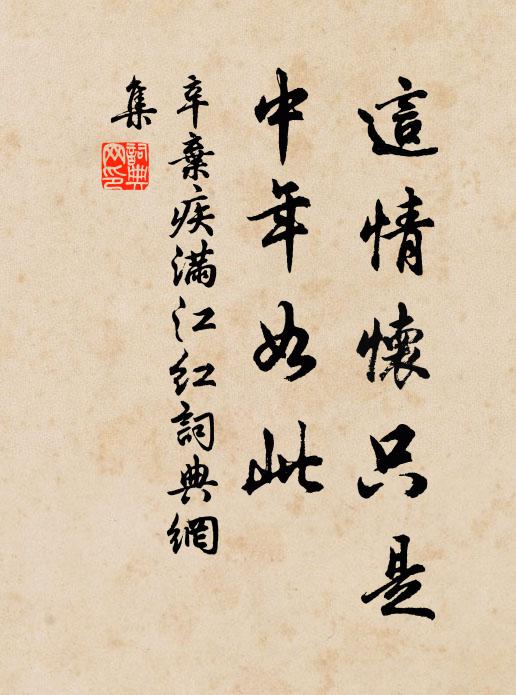 這情懷只是
中年如此
辛棄疾滿江紅詞典網
集
詞典
网印